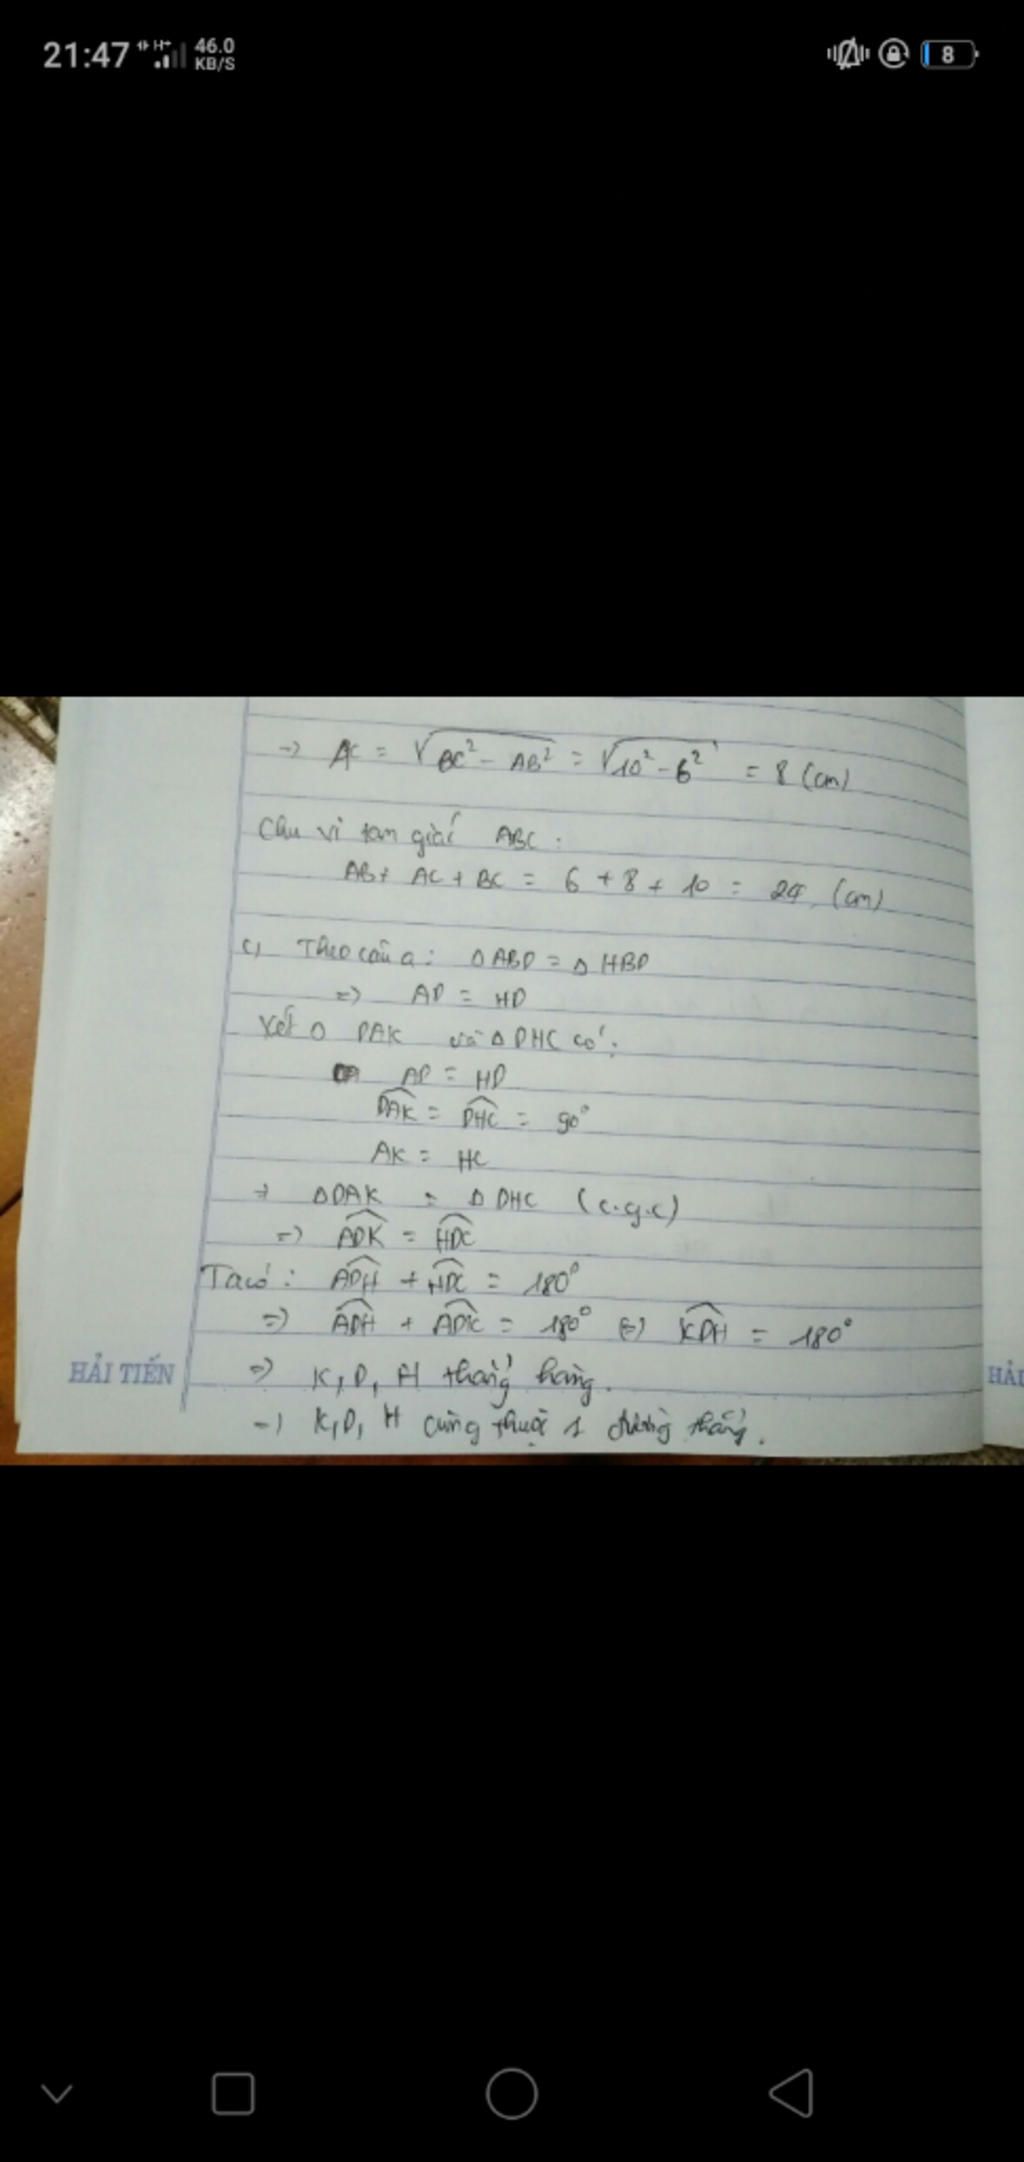 21:47 H+ 46.0 KB/S 8
=> AC = √BC² - AB² = √10² - 6² = 8 (cm)
Chu vi tam giác ABC :
AB + AC + BC = 6 + 8 + 10 = 24 (cm)
c, Theo câu a : Δ ABD = Δ HBD
=> AD = HD
Xét Δ DAK và Δ DHC có :
AD = HD
DAK = DHC = 90°
AK = HC
=> Δ DAK = Δ DHC (c.g.c)
=> ADK = HDC
Ta có : ADH + HDC = 180°
=> ADH + ADK = 180° (=) KDH = 180°
HẢI TIẾN => K, D, H thẳng hàng. HẢI
=) K, D, H cùng thuộc 1 đường thẳng.